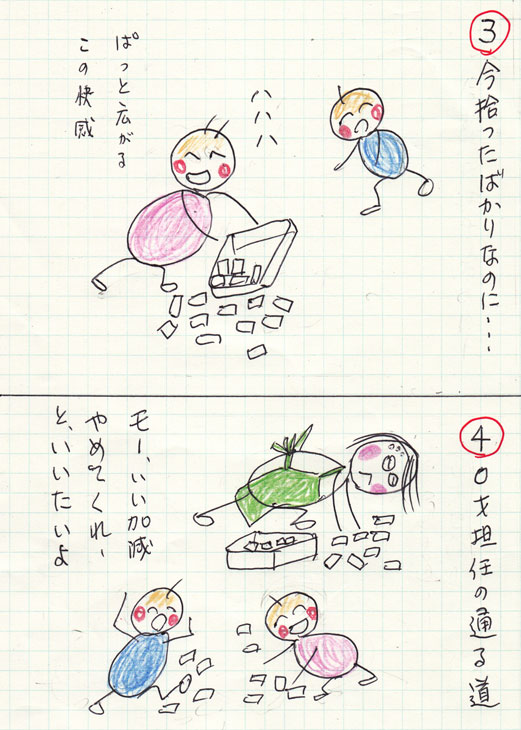 ③今拾ったばかりなのに・・・
ハハハ
ぱっと広がる
この快感
④0才担任の通る道
モー、いい加減
やめてくれー
と、いいたいよ